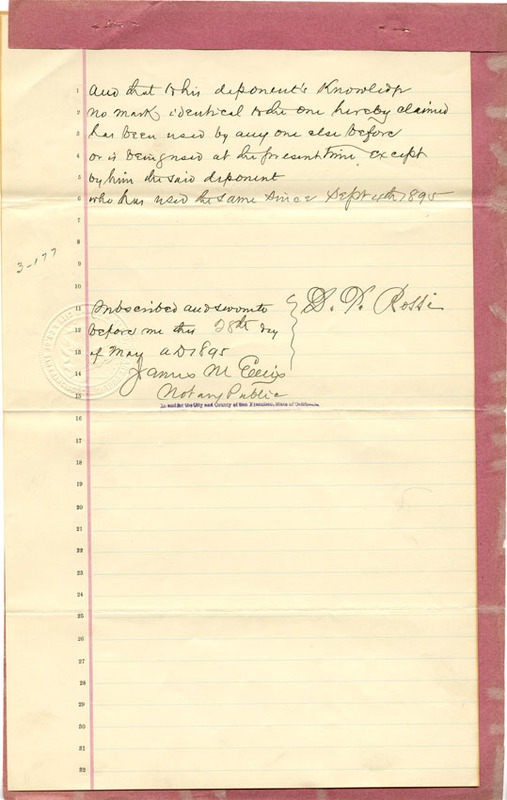 and that to this deponent's knowledge
no mark identical to the one hereby claimed
has been used by any one else before
or is being used at the present time, except
by him the said deponent
who has used the same since Sept 4th 1895
3-177
Subscribed and sworn to
before me this 28th day
of May AD 1895
D. D. Rossi
James M Ellis
Notary Public
In and for the City and County of San Francisco, State of California.
1
2
3
4
5
6
7
8
9
10
11
12
13
14
15
16
17
18
19
20
21
22
23
24
25
26
27
28
29
30
31
32